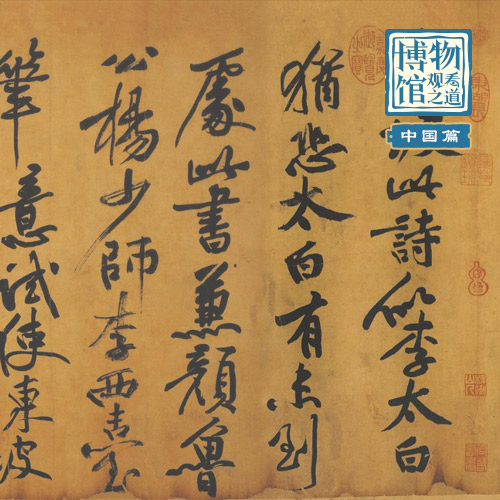 博物馆
观看之道
中国篇
此詩似李太白
猶恐太白有未到
處此書兼顏魯
公楊少師李西臺
筆意試使東坡